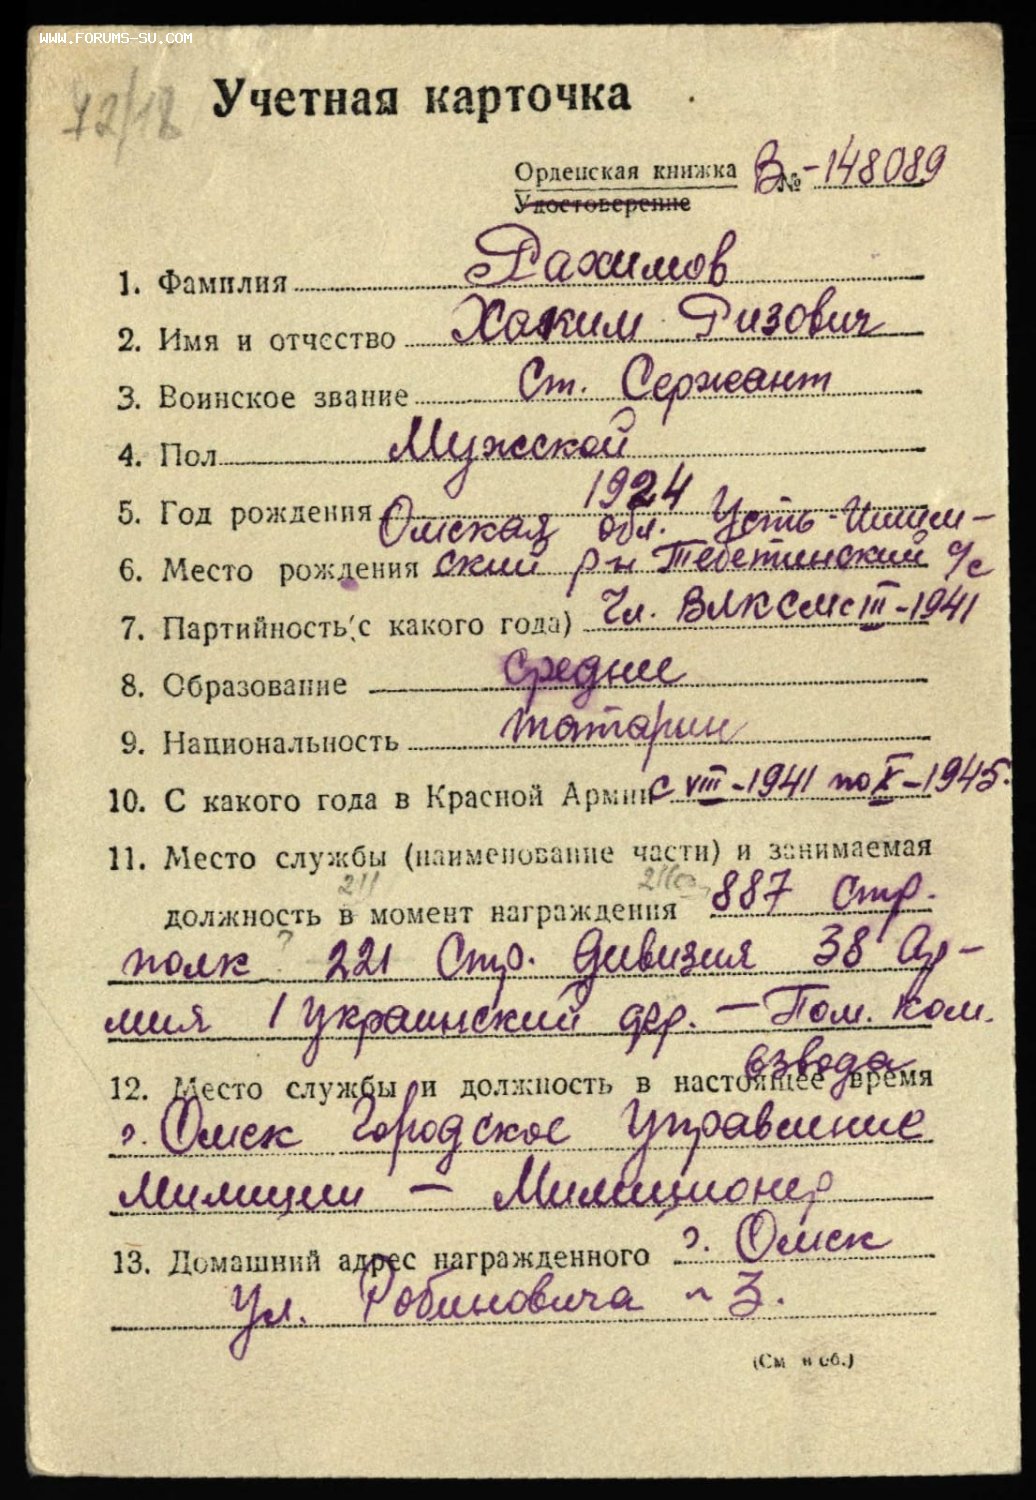 WWW.FORUMS-SU.COM
72/18
Учетная карточка
Орденская книжка В № -148089
Удостоверение
1. Фамилия Рахимов
2. Имя и отчество Хаким Ризович
3. Воинское звание Ст. Сержант
4. Пол Мужской
5. Год рождения 1924
Омская обл. Усть-Ишим-
6. Место рождения ский р-н Тебетинский с/с
7. Партийность (с какого года) Чл. ВЛКСМ с III-1941
8. Образование средние
9. Национальность татарин
10. С какого года в Красной Армии с VIII-1941 по X-1945.
11. Место службы (наименование части) и занимаемая
211
должность в момент награждения 887 стр.
полк ? 221 Стр. дивизия 38 Ар-
мия 1 украинский фр. — Пом. ком.
взвода
12. Место службы и должность в настоящее время
г. Омск Городское Управление
Милиции — Милиционер
13. Домашний адрес награжденного г. Омск
Ул. Робиновича - 3.
(См. н об.)